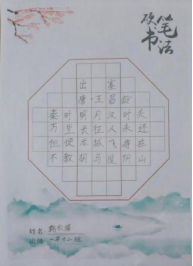 硬笔
书法
出塞
唐·王昌龄
秦时明月汉时关
万里长征人未还
但使龙城飞将在
不教胡马度阴山
姓名
班级